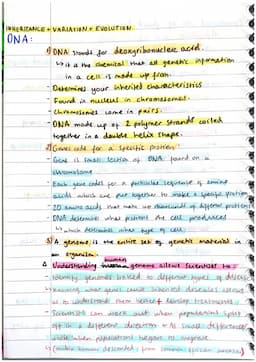 INHERITANCE + VARIATION + EVOLUTION
DNA:
1) DNA stands for deoxyribonucleic acid.
↳ it is the chemical that all genetic information
in a cell is made up from.
Determines your inherited characteristics
Found in nucleus in chromosomes.
Chromosomes come in pairs.
DNA made up of 2 polymer strands coiled
together in a double helix shape.
2) Genes code for a specific protein:
Gene is small section of DNA found on a
chromosome
Each gene codes for a particular sequence of amino
acids which are put together to make a specific protein
20 amino acids that make up thousands of different proteins
DNA determines what proteins the cell produces
↳ which determines what type of cell
3) A genome is the entire set of genetic material in
an organism.
Understanding human genome allows scientist to:
identify genes linked to different types of disease
knowing what genes cause inherited diseases
us to understand them better + develop treatments
Scientists can work out when populations split
off in a different direction
when populations began to migrate